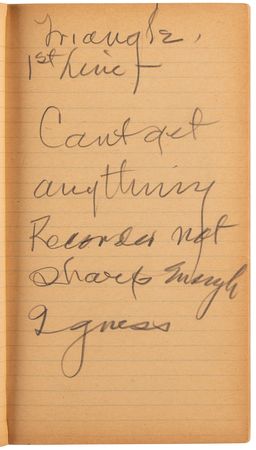 Triangle.
1st Line
Cant get
anything
Recorder not
sharp enough
I guess